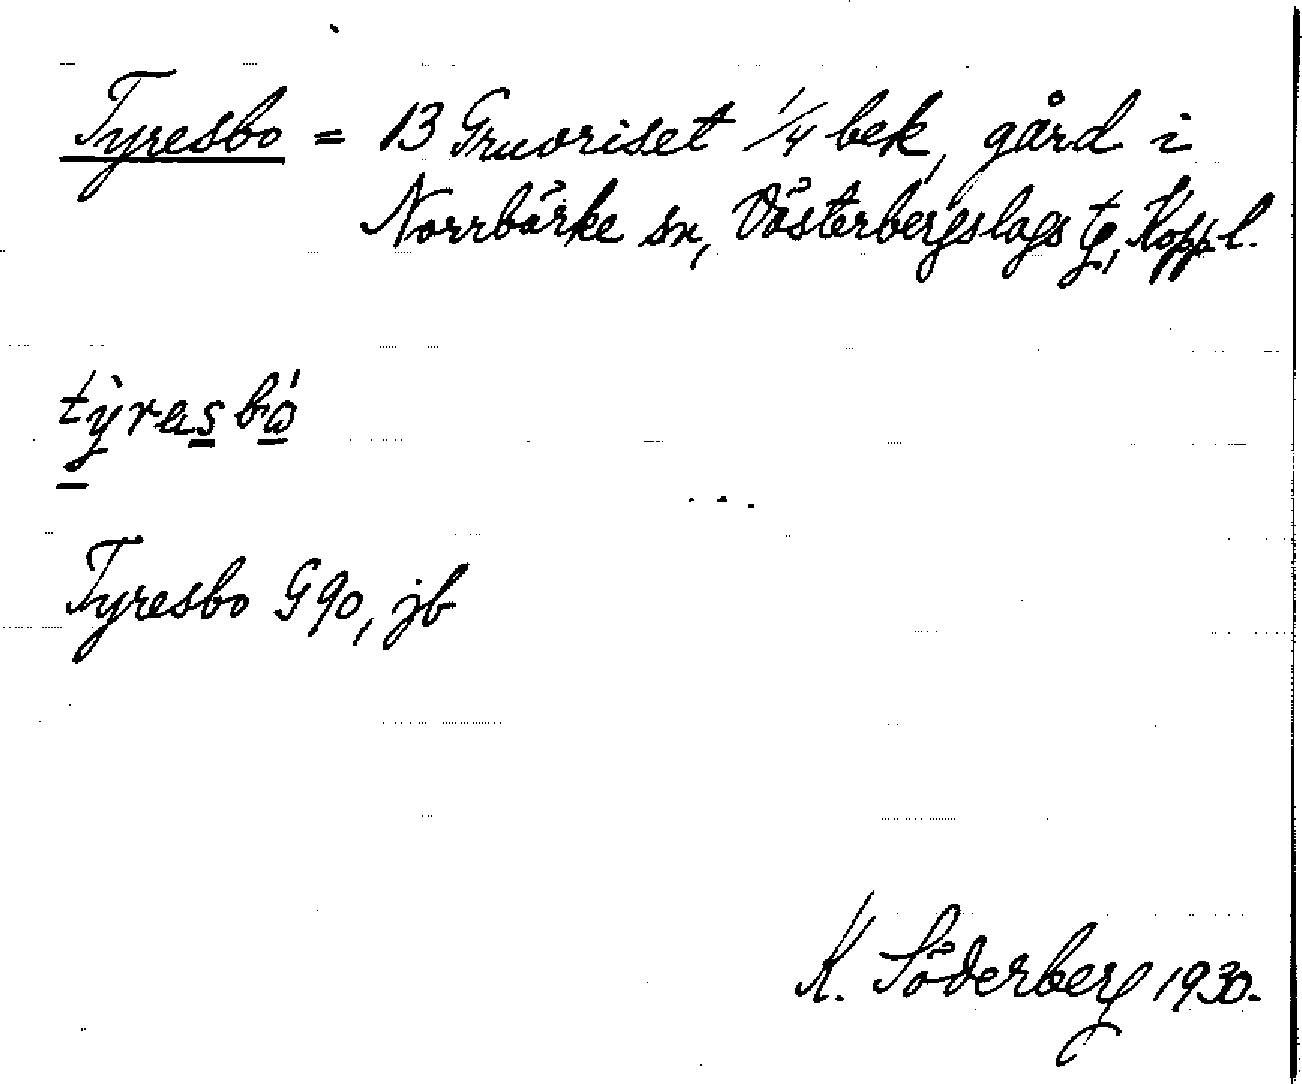 Tyresbo = 13 Gruvriset 1/4 bek, gård i
Norrbärke sn, Västerbergslags tg, Kopp. l.
tỳrasbó
Tyresbo G 90, jb
K. Söderberg 1930.